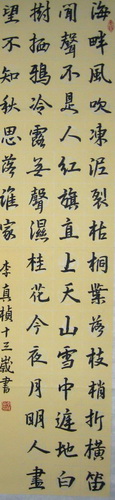 海畔風吹凍泥裂枯桐葉落枝梢折橫笛
聞聲不是人紅旗直上天山雪中庭地白
樹栖鴉冷露無聲濕桂花今夜月明人盡
望不知秋思落誰家
李真楨十三歲書